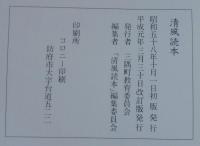 清風読本
昭和五十八年十月一日初版 発行
平成元年三月三十日改訂版発行
発行者 三隅町教育委員会
編集者 「清風読本」編集委員会
印刷所
コロニー印刷
防府市大字台道五一二